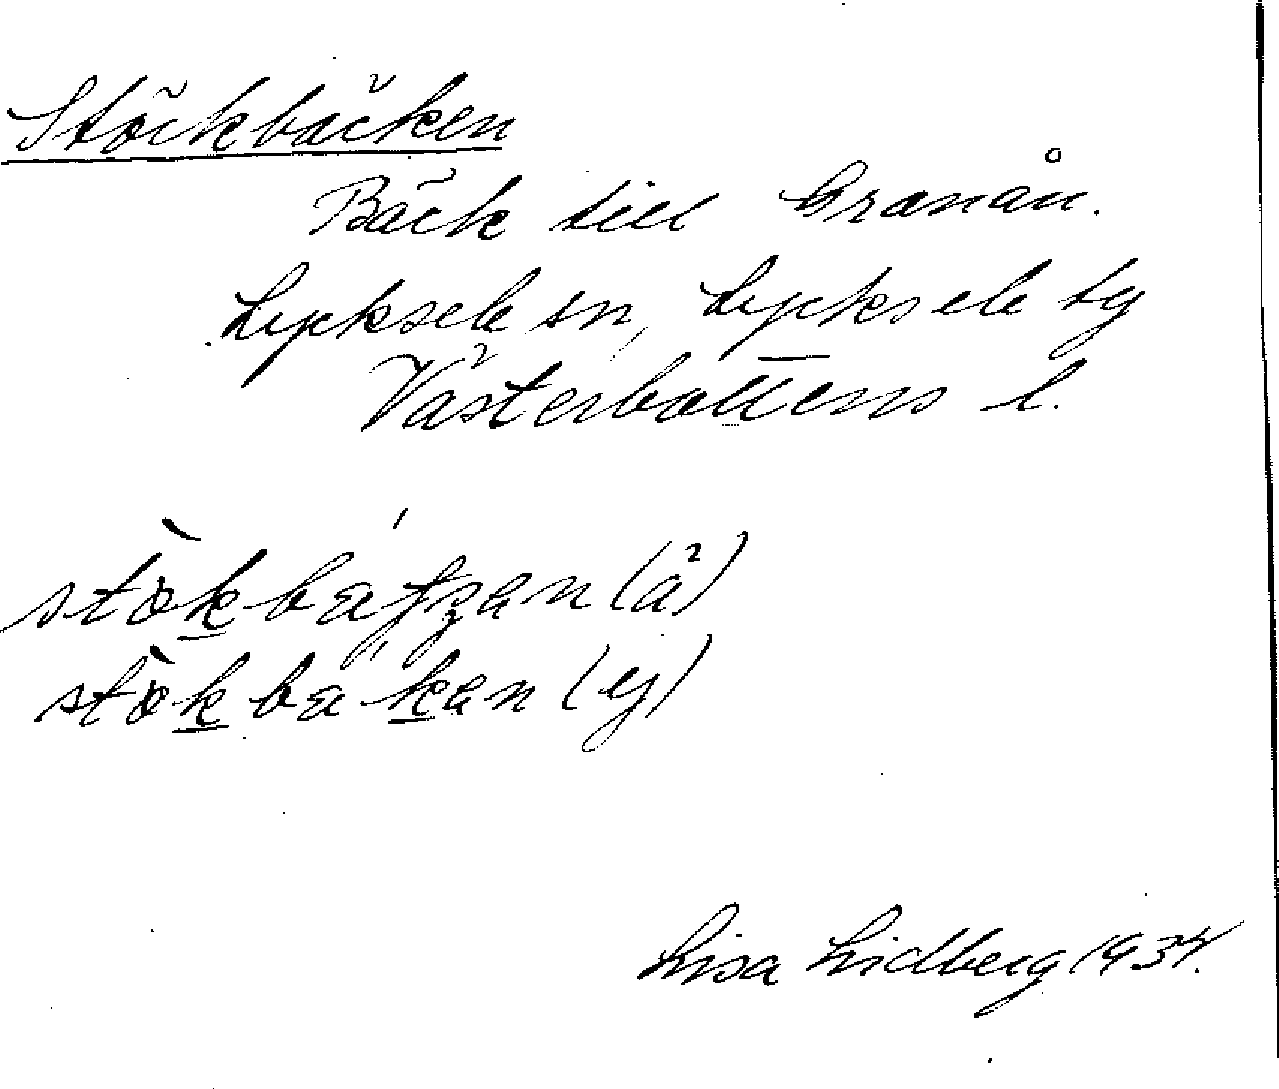 Stöckbäcken
Bäck till Granån.
Lycksele sn, Lycksele by
Västerbottens l.
stö̀kbä́tʒan (ä)
stö̀kbäkan (y)
Lisa Lidberg 1934.